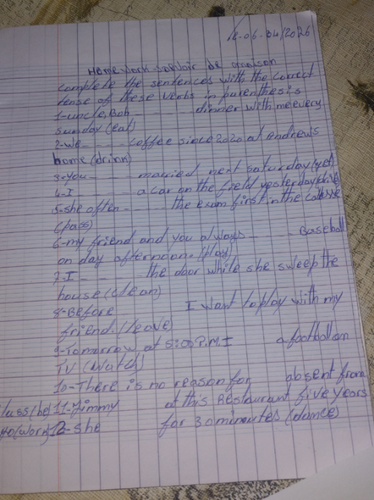 Le 06/04/2026
Homework Devoir de maison
Complete the sentences with the correct
tense of these verbs in parenthesis
1-uncle Bob ... dinner with me every
sunday (eat)
2-we ... coffee since 2020 at
home (drink)
3-you ... married next saturday (get)
4-I ... a car on the field yesterday
5-she often ... the exam first in the
(pass)
6-my friend and you always ... Baseball
on day afternoon. (play)
7-I ... the door while she sweep the
house (clean)
8-Before ... I want to play with my
friend. (leave)
9-Tomorrow at 5:00 P.M. I ... a football on
TV (watch)
10-There is no reason for ... absent from
class (be) 11-Jimmy ... at this Restaurant five years
ago (work) 12-she ... for 30 minutes (dance)